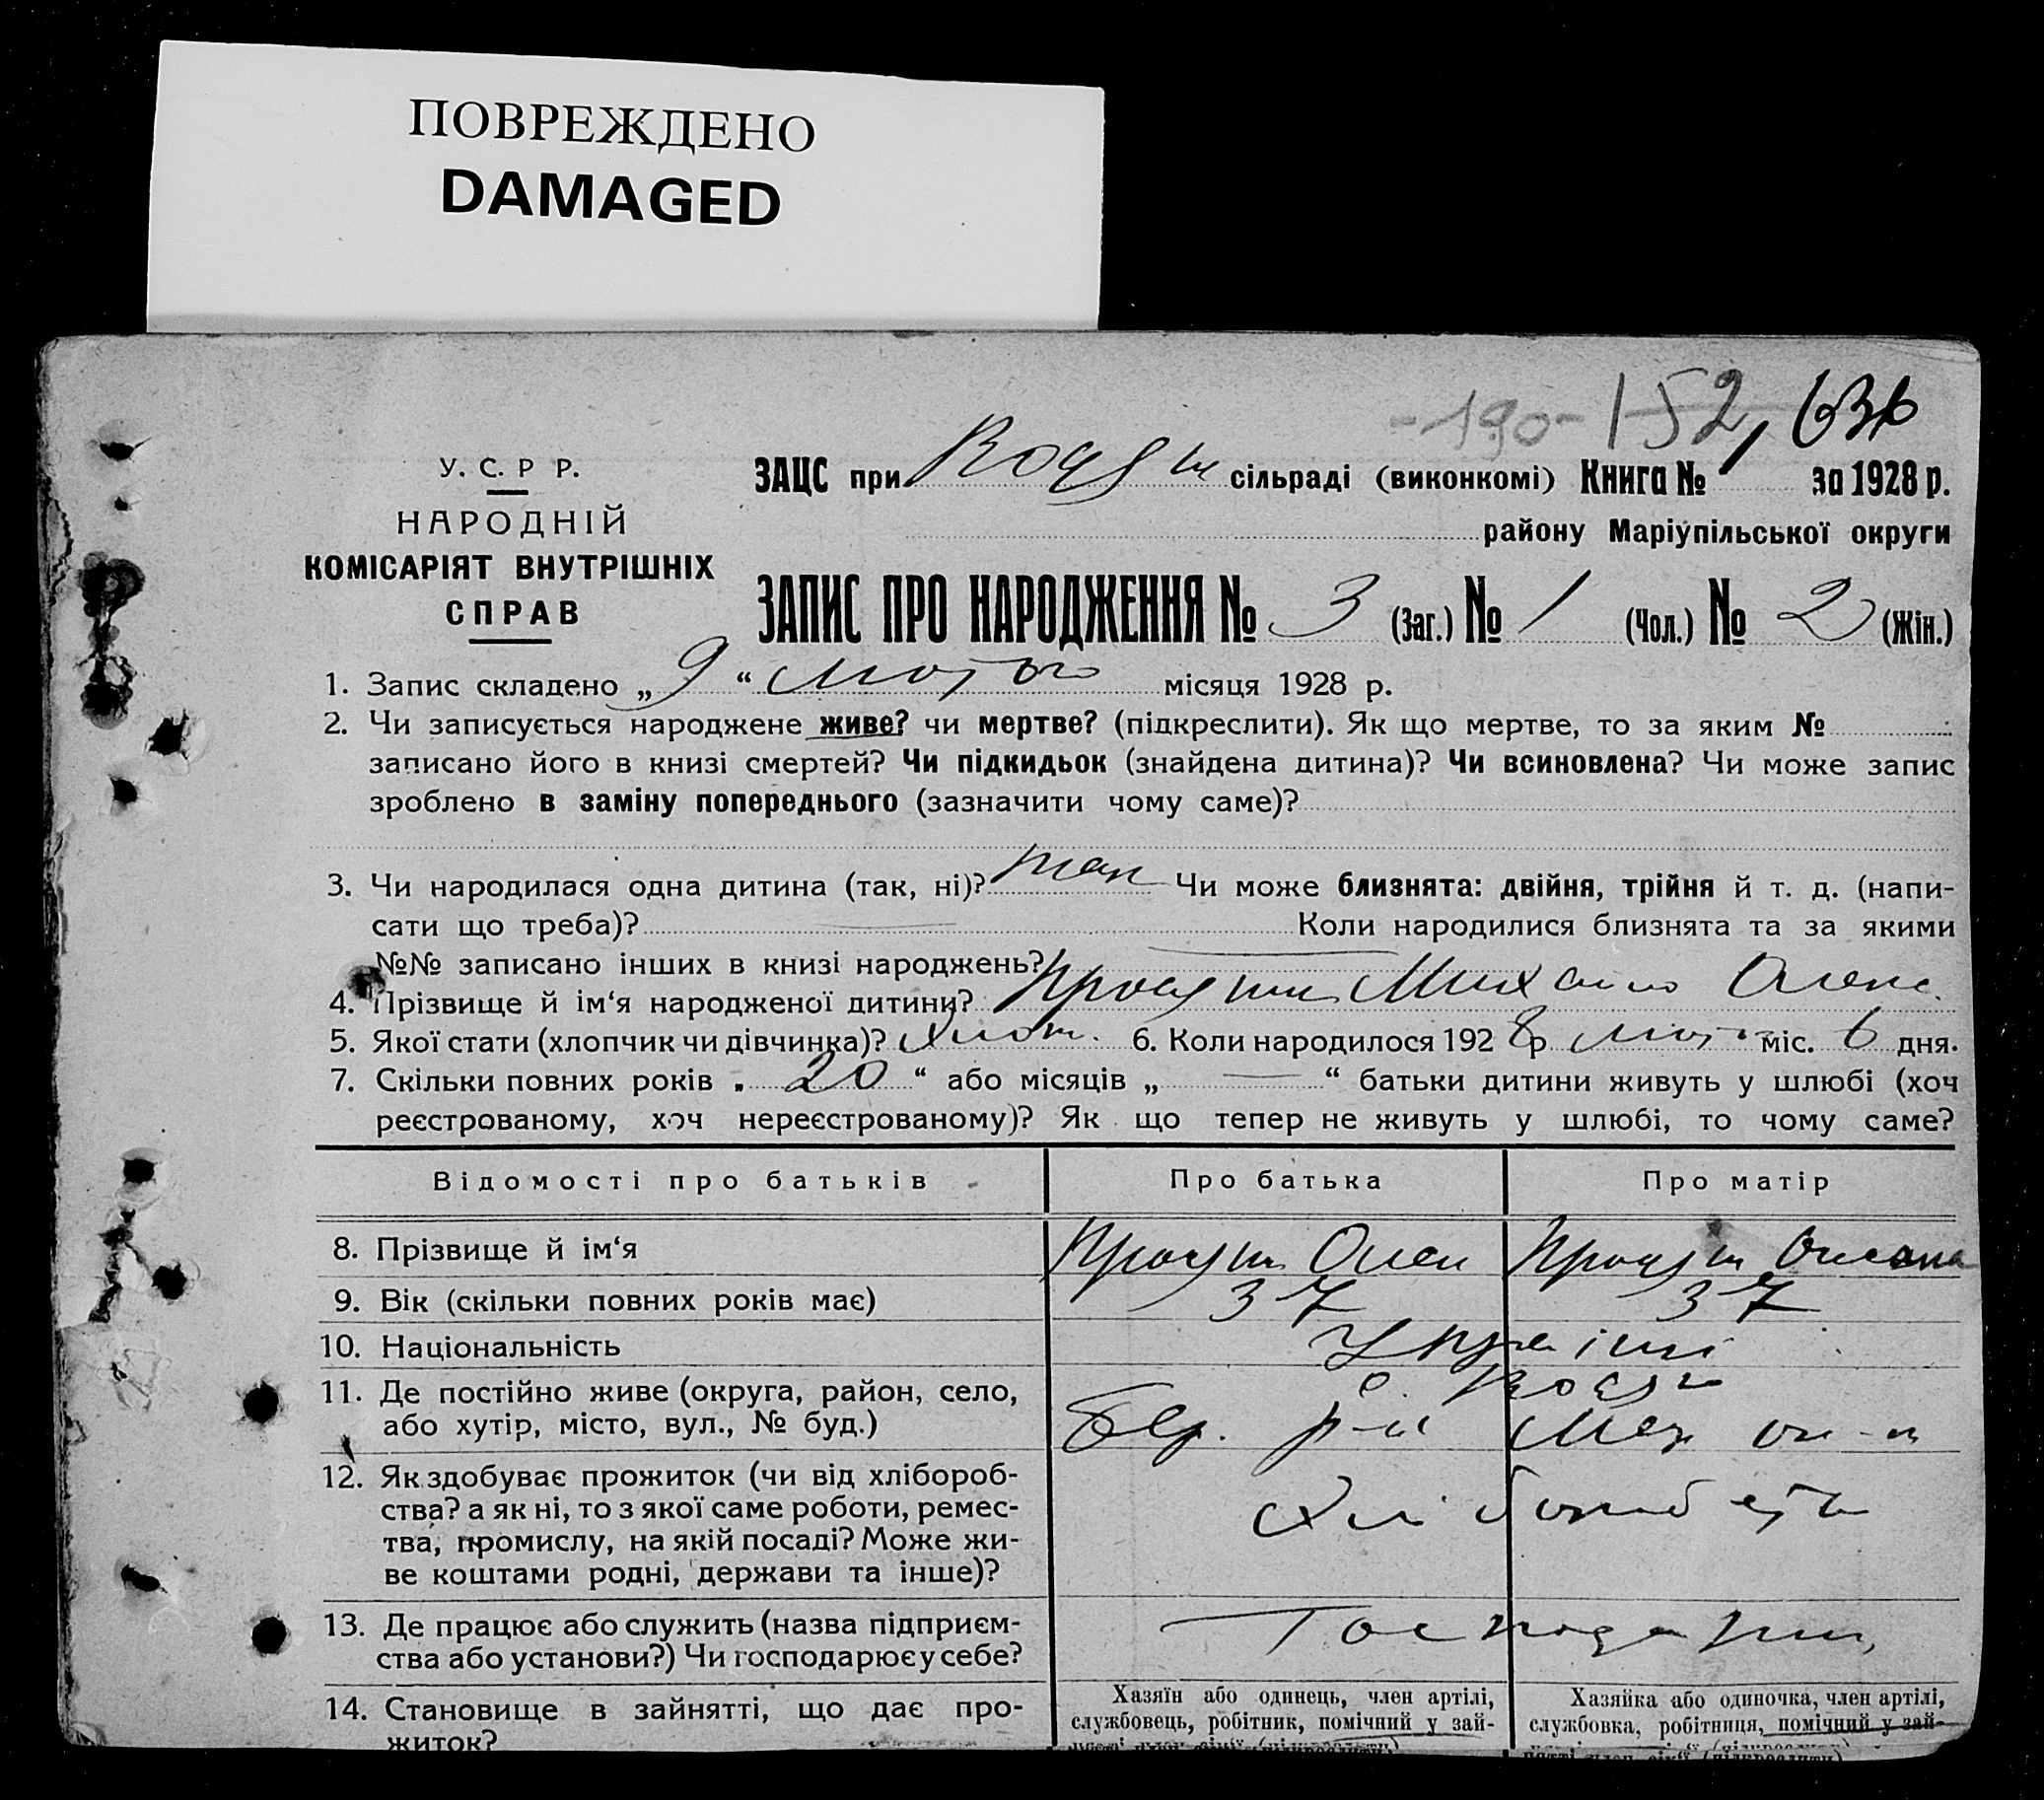 ПОВРЕЖДЕНО
DAMAGED
-190- 152, 636
У. С. Р Р.
НАРОДНІЙ
КОМІСАРІЯТ ВНУТРІШНІХ
СПРАВ
ЗАЦС при сільраді (виконкомі) Книга № за 1928 р.
району Маріупільської округи
ЗАПИС ПРО НАРОДЖЕННЯ № 3 (Заг.) № 1 (Чол.) № 2 (Жін.)
1. Запис складено „ 9 “ лютого місяця 1928 р.
2. Чи записується народжене живе? чи мертве? (підкреслити). Як що мертве, то за яким №
записано його в книзі смертей? Чи підкидьок (знайдена дитина)? Чи всиновлена? Чи може запис
зроблено в заміну попереднього (зазначити чому саме)?
3. Чи народилася одна дитина (так, ні)? так Чи може близнята: двійня, трійня й т. д. (напи-
сати що треба)? — Коли народилися близнята та за якими
№№ записано інших в книзі народжень? —
4. Прізвище й ім‘я народженої дитини? Михайло Олекс.
5. Якої стати (хлопчик чи дівчинка)? Хлоп. 6. Коли народилося 1928 р. лют. міс. 6 дня.
7. Скільки повних років „ 20 “ або місяців „ — “ батьки дитини живуть у шлюбі (хоч
реєстрованому, хоч нереєстрованому)? Як що тепер не живуть у шлюбі, то чому саме?
Відомості про батьків Про батька Про матір
8. Прізвище й ім‘я Олек Оксана
9. Вік (скільки повних років має) 37 37
10. Національність Україні
11. Де постійно живе (округа, район, село, с.
або хутір, місто, вул., № буд.) р-н
12. Як здобуває прожиток (чи від хлібороб-
ства? а як ні, то з якої саме роботи, ремес-
тва, промислу, на якій посаді? Може жи-
ве коштами родні, держави та інше)?
13. Де працює або служить (назва підприєм-
ства або установи?) Чи господарює у себе?
14. Становище в зайнятті, що дає про-
житок?
Хазяїн або одинець, член артілі,
службовець, робітник, помічний у зай-
Хазяйка або одиночка, член артілі,
службовка, робітниця, помічний у зай-
нятті член сім‘ї (підкреслити)